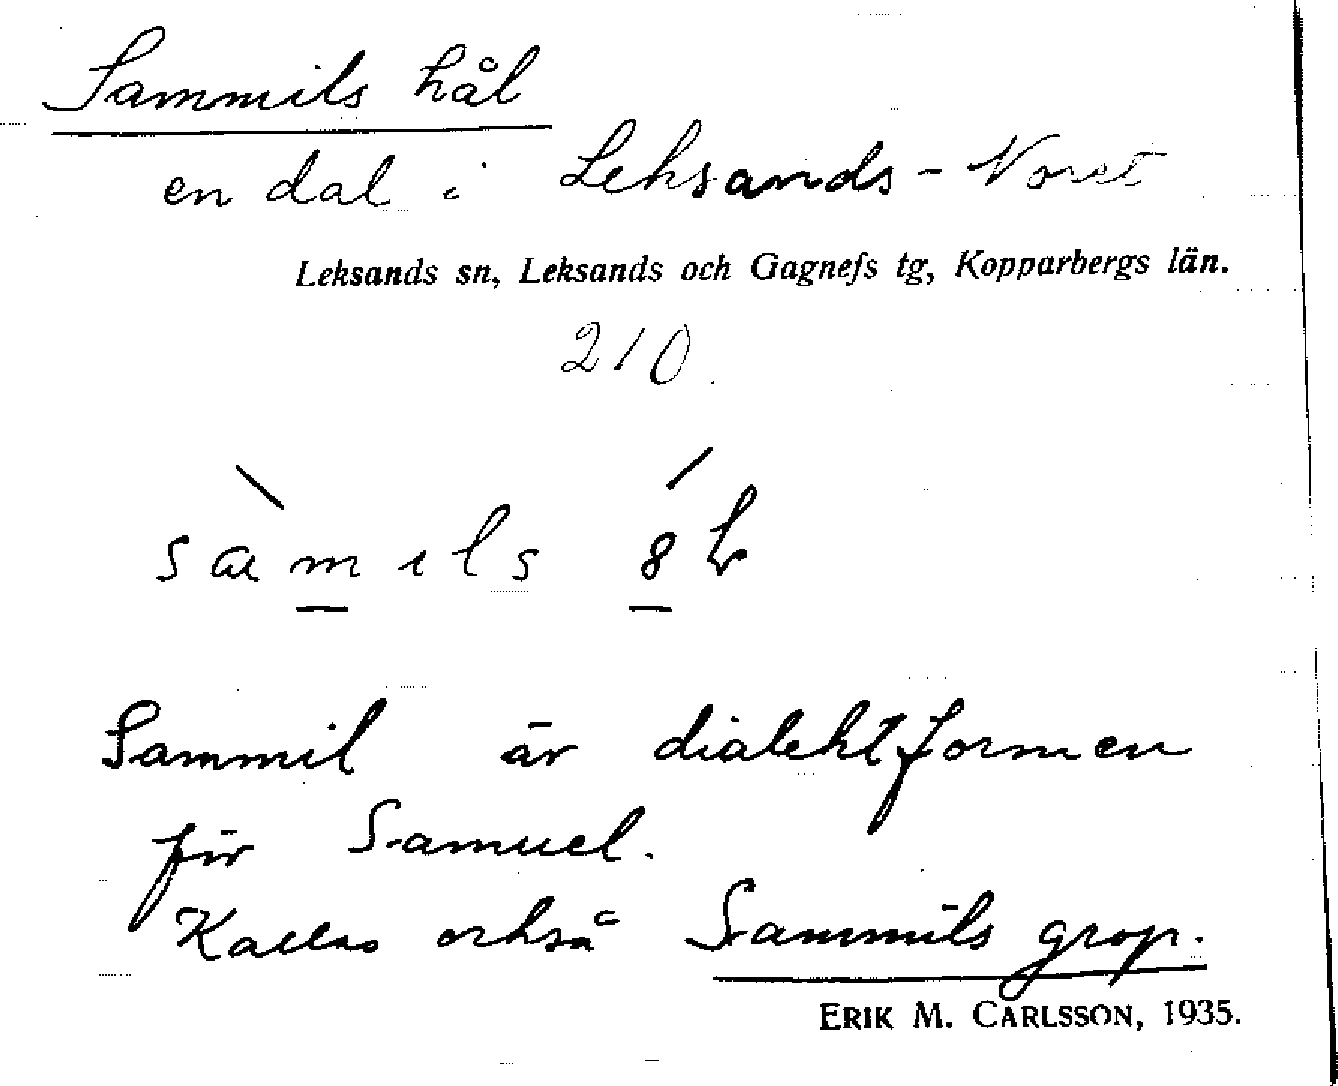 Sammils hål
en dal i Leksands-Noret
Leksands sn, Leksands och Gagnefs tg, Kopparbergs län.
210
Sammil är dialektformen
för Samuel.
Kallas också Sammils grop.
ERIK M. CARLSSON, 1935.